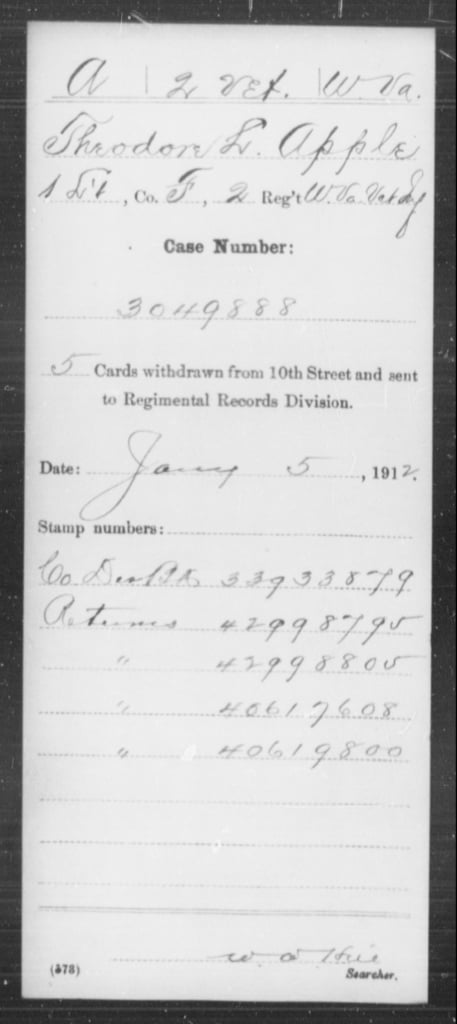 A | 2 Vet. | W. Va.
Theodore L. Apple
1 Lt, Co. F, 2 Reg't W. Va. Vet Inf
Case Number:
3049888
5 Cards withdrawn from 10th Street and sent
to Regimental Records Division.
Date: Jany 5, 1912.
Stamp numbers:
Co Des Bk 33933879
Returns 42998795
" 42998805
" 40617608
" 40619800
W. A.
(578) Searcher.